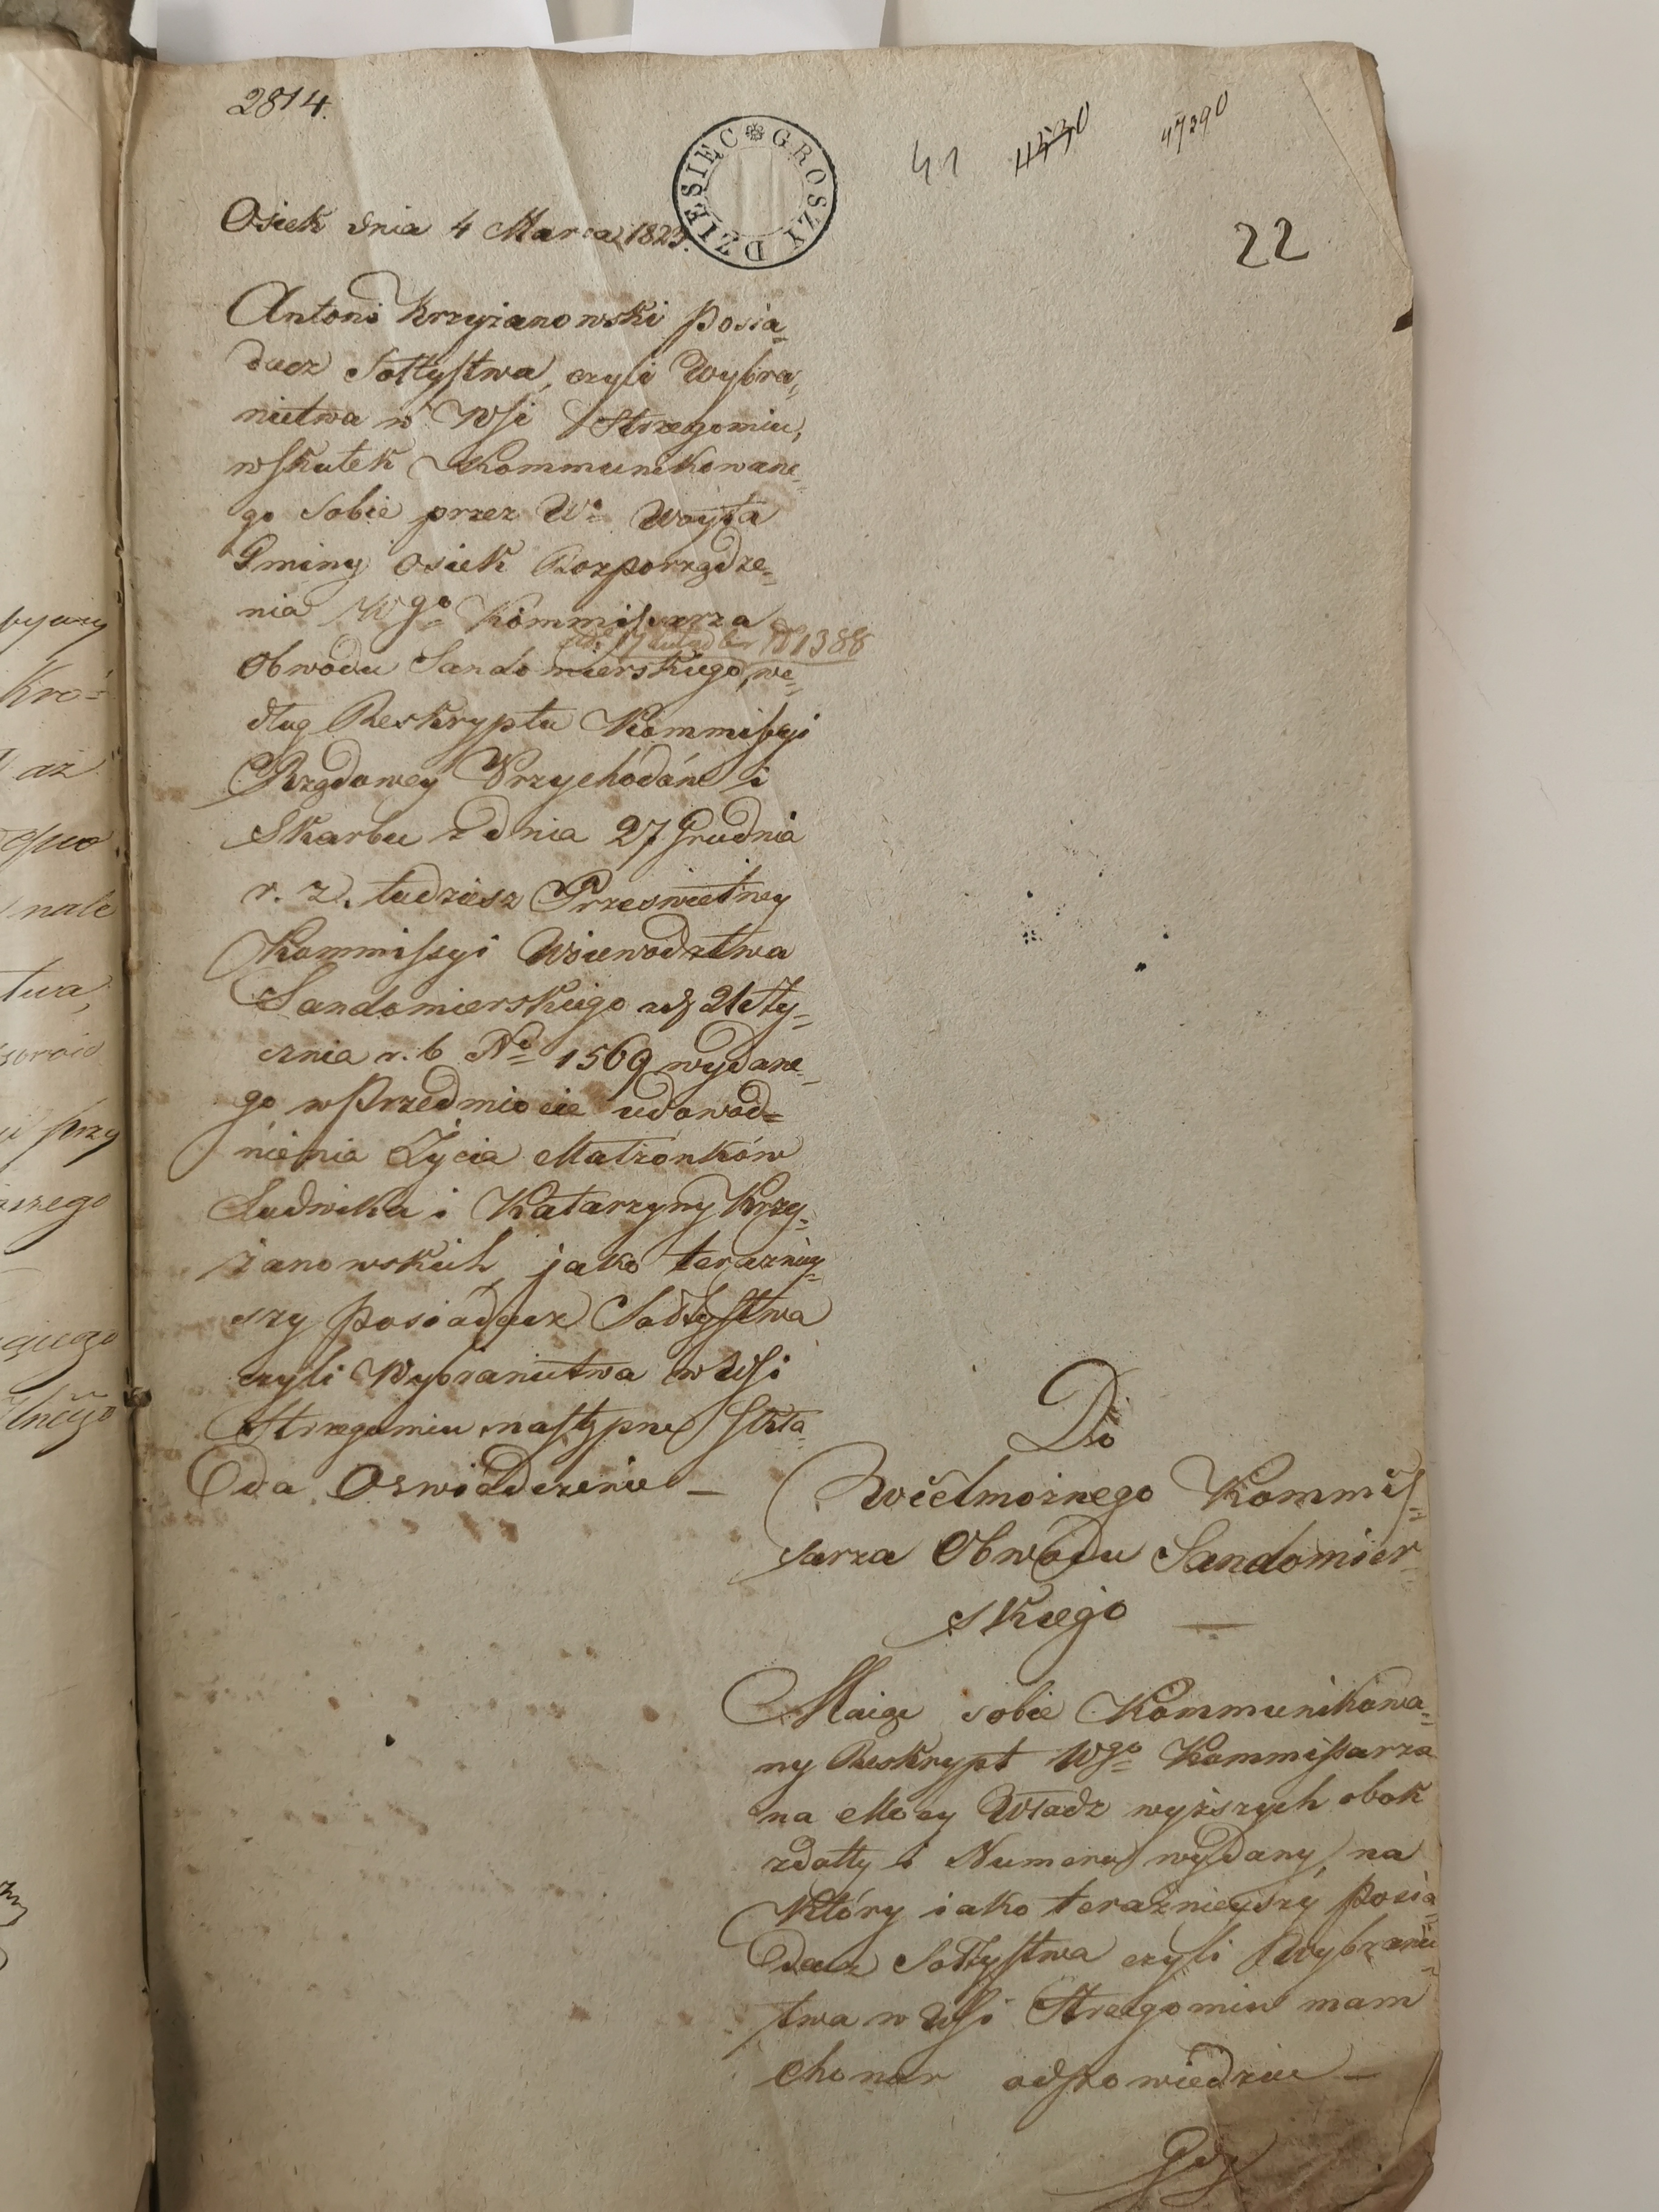 2814.
DZIESIĘC GROSZY
41
4530
47290
22
Osiek dnia 4 Marca 1823.
Antoni Krzyżanowski Posia-
dacz Sołtystwa, czyli Wybra,
nictwa w Wsi Strzegomiu,
wskutek Kommunikowane-
go sobie przez Wo Woyta
Gminy Osiek Rozporządze-
nia Wgo Kommissarza
17 Lutego br No 1388
Obwodu Sandomierskiego, we-
dług Reskryptu Kommissyi
Rządowey Przychodów i
Skarbu z dnia 27 Grudnia
r. z. tudziesz Prześwietney
Kommissyi Woiewodztwa
Sandomierskiego 21 Sty-
cznia r. b No 1569 wydane-
go w Przedmiocie udowod-
nienia Życia Małżonków
Ludwika i Katarzyny Krzy-
żanowskich, jako teraźniey-
szy posiadacz Sołtystwa
czyli Wybranictwa w Wsi
Strzegomiu, nastepne skła-
da Oswiadczenie —
Do
Wielmożnego Kommis-
sarza Obwodu Sandomier-
skiego —
Maiąc sobie Kommunikowa-
ny Reskrypt Wgo Kommissarza
na Mocy Władz wyższych obok
zdatty i Numeru wydany, na
który iako teraźnieyszy Posia-
dacz Sołtystwa czyli Wybranic-
twa w Wsi Strzegomiu mam
honor odpowiedziec —
Gdy